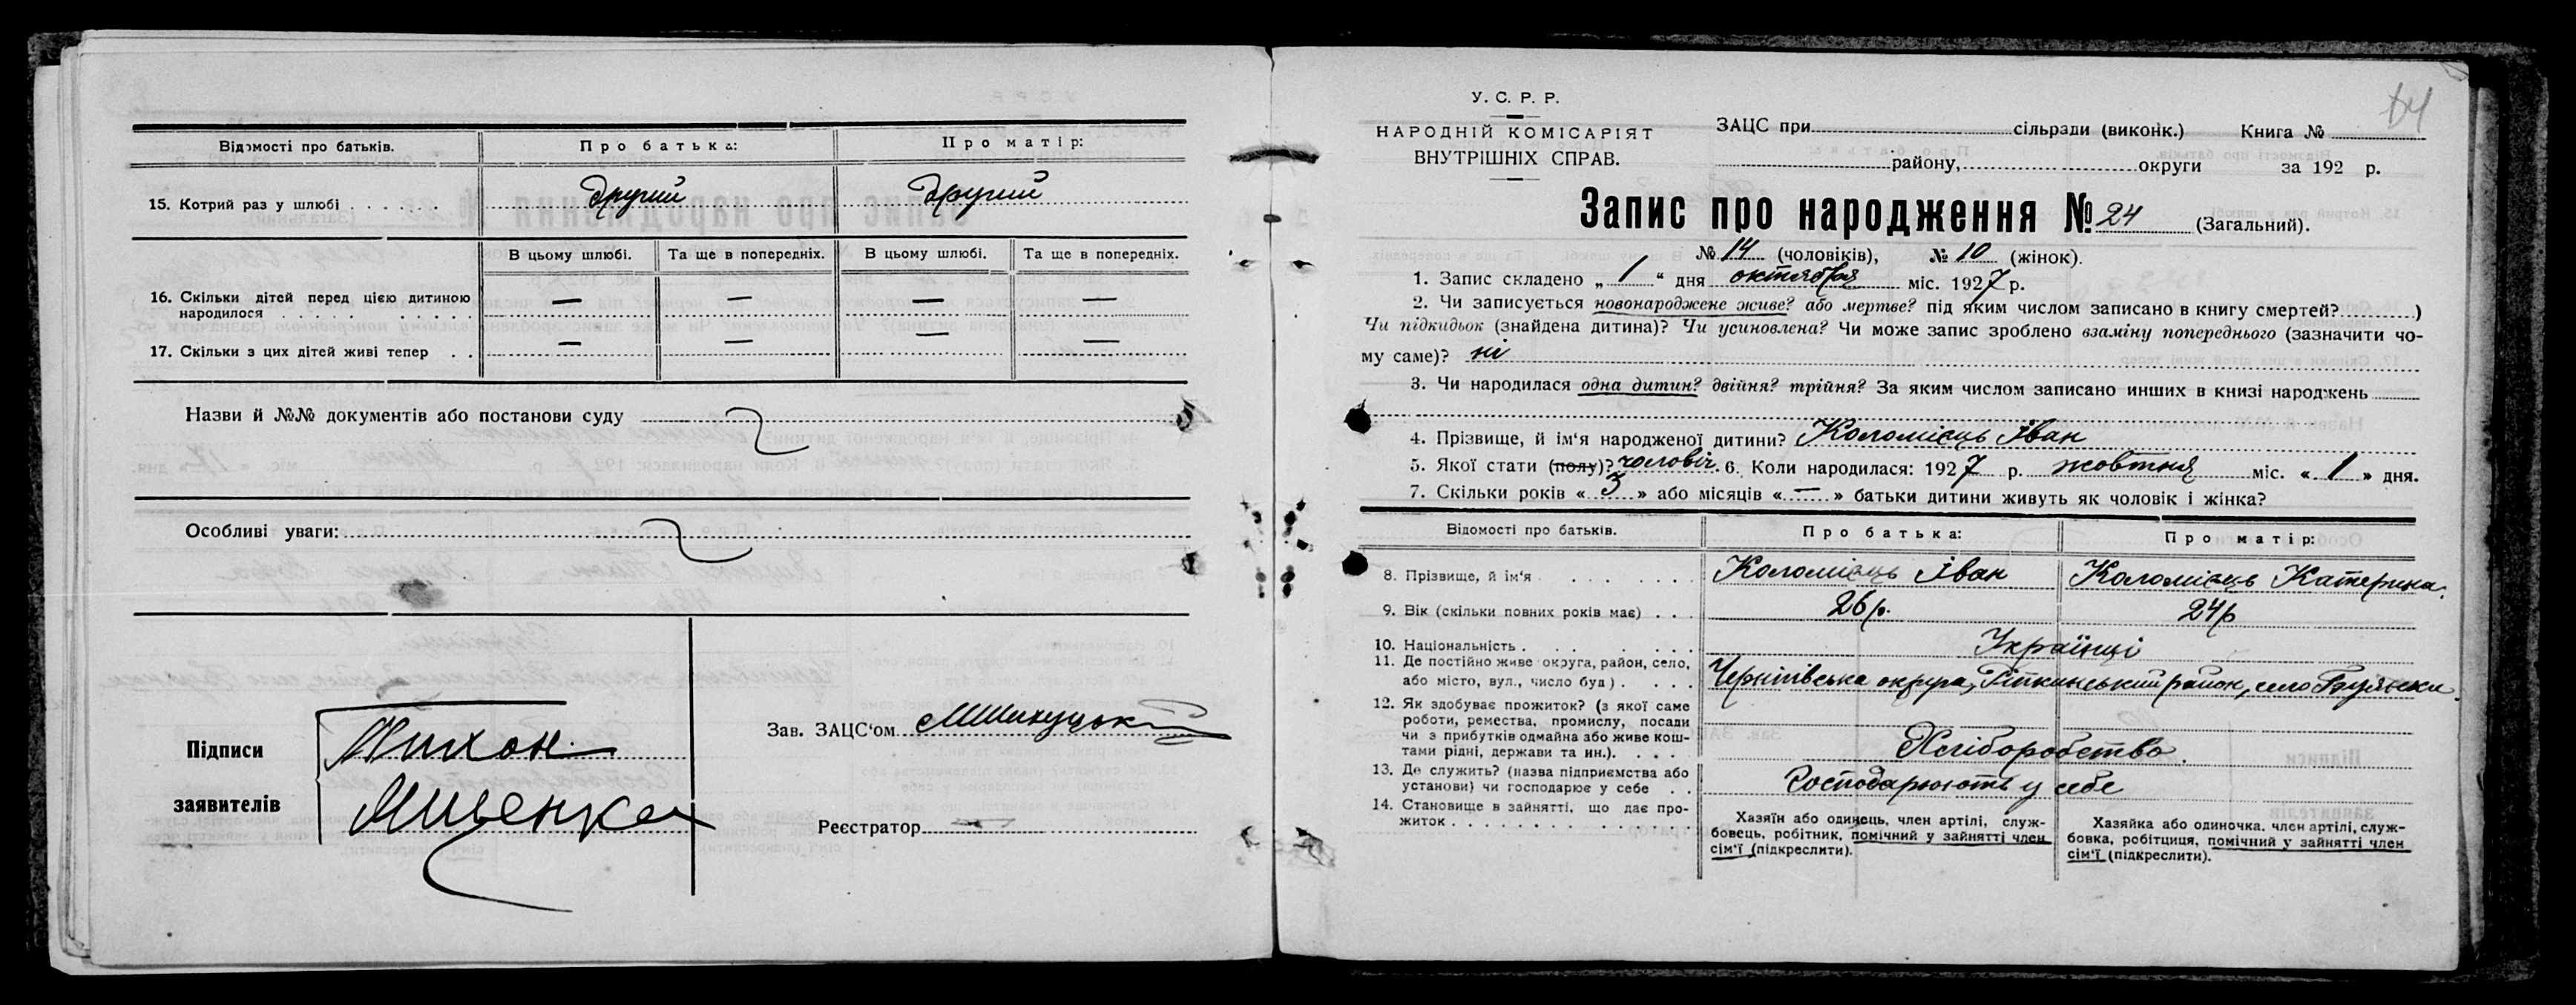 Відомості про батьків.
Про батька:
Про матір:
15. Котрий раз у шлюбі . . . . . . .
другий
другий
В цьому шлюбі.
Та ще в попередніх.
В цьому шлюбі.
Та ще в попередніх.
16. Скільки дітей перед цією дитиною
народилося . . . . . . . . . .
— — — —
17. Скільки з цих дітей живі тепер . .
— — — —
Назви й №№ документів або постанови суду
Особливі уваги:
Підписи
заявителів
Тихон
Мищенко
Зав. ЗАЦС'ом
Реєстратор —
У. С. Р. Р.
НАРОДНІЙ КОМІСАРІЯТ
ВНУТРІШНІХ СПРАВ.
64
ЗАЦС при сільради (виконк.) Книга №
району, округи за 192 р.
Запис про народження № 24 (Загальний).
№ 14 (чоловіків), № 10 (жінок).
1. Запис складено „ 1 “ дня октября міс. 1927 р.
2. Чи записується новонароджене живе? або мертве? під яким числом записано в книгу смертей? )
Чи підкидьок (знайдена дитина)? Чи усиновлена? Чи може запис зроблено взаміну попереднього (зазначити чо-
му саме)? ні
3. Чи народилася одна дитин? двійня? трійня? За яким числом записано инших в книзі народжень
4. Прізвище, й ім'я народженої дитини? Коломієць Іван
5. Якої стати (полу)? чоловіч. 6. Коли народилася: 1927 р. жовтня міс. « 1 » дня.
7. Скільки років « 3 » або місяців « — » батьки дитини живуть як чоловік і жінка?
Відомості про батьків.
Про батька:
Про матір:
8. Прізвище, й ім'я . . . . . . . .
Коломієць Іван
Коломієць Катерина.
9. Вік (скільки повних років має) . . .
26 р.
24 р
10. Національність . . . . . . . .
Українці
11. Де постійно живе округа, район, село,
або місто, вул., число буд) . . . . .
Чернігівська округа, Ріпкинський район, село
12. Як здобуває прожиток? (з якої саме
роботи, ремества, промислу, посади
чи з прибутків одмайна або живе кош-
тами рідні, держави та ин.). . . . .
Хліборобство.
13. Де служить? (назва підприємства або
установи) чи господарює у себе . .
Господарюють у себе
14. Становище в зайнятті, що дає про-
житок . . . . . . . . . . . . . .
Хазяїн або одинець, член артілі, служ-
бовець, робітник, помічний у зайнятті член
сім'ї (підкреслити).
Хазяйка або одиночка, член артілі, служ-
бовка, робітниця, помічний у зайнятті член
сім'ї (підкреслити).